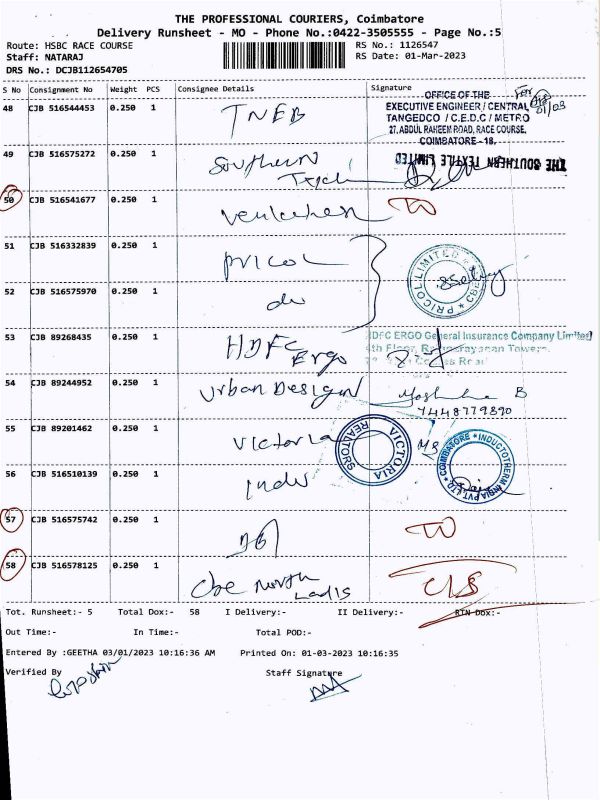 THE PROFESSIONAL COURIERS, Coimbatore
Delivery Runsheet - MO - Phone No.:0422-3505555 - Page No.:5
Route: HSBC RACE COURSE
RS No.: 1126547
Staff: NATARAJ
RS Date: 01-Mar-2023
DRS No.: DCJB112654705
S No Consignment No Weight PCS Consignee Details Signature
48 CJB 516544453 0.250 1 TNEB
OFFICE OF THE
EXECUTIVE ENGINEER / CENTRAL
TANGEDCO / C.E.D.C / METRO
27, ABDUL RAHEEM ROAD, RACE COURSE,
COIMBATORE - 18.
01/03
49 CJB 516575272 0.250 1 Southern
THE SOUTHERN TEXTILE LIMITED
50 CJB 516541677 0.250 1
51 CJB 516332839 0.250 1 Pricol
PRICOL LIMITED
52 CJB 516575970 0.250 1 do
53 CJB 89268435 0.250 1 HDFC
Ergo
HDFC ERGO General Insurance Company Limited
4th Floor,
54 CJB 89244952 0.250 1 Urban Design
7448779890
55 CJB 89201462 0.250 1 Victoria
VICTORIA REALTORS
MS
56 CJB 516510139 0.250 1 Indu
COIMBATORE * INDUCTOTHERM INDIA PVT. LTD.
57 CJB 516575742 0.250 1
58 CJB 516578125 0.250 1 Cbe North
Ladis
C/S
Tot. Runsheet:- 5 Total Dox:- 58 I Delivery:- II Delivery:- RTN Dox:-
Out Time:- In Time:- Total POD:-
Entered By :GEETHA 03/01/2023 10:16:36 AM Printed On: 01-03-2023 10:16:35
Verified By Staff Signature